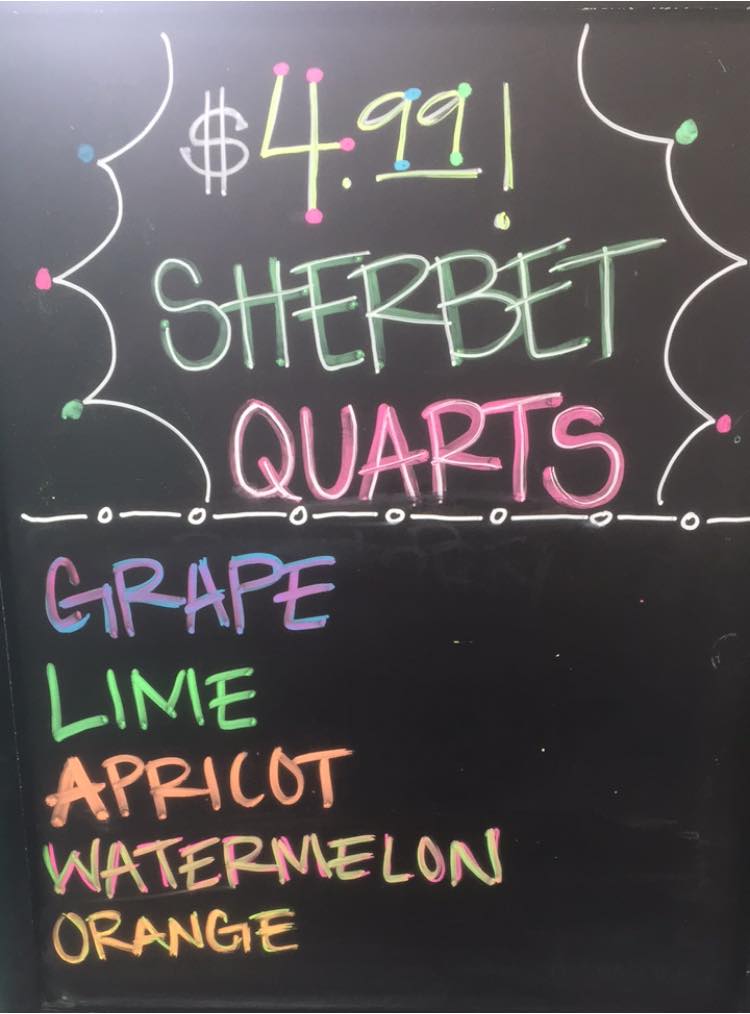 $4.99!
SHERBET
QUARTS
GRAPE
LIME
APRICOT
WATERMELON
ORANGE